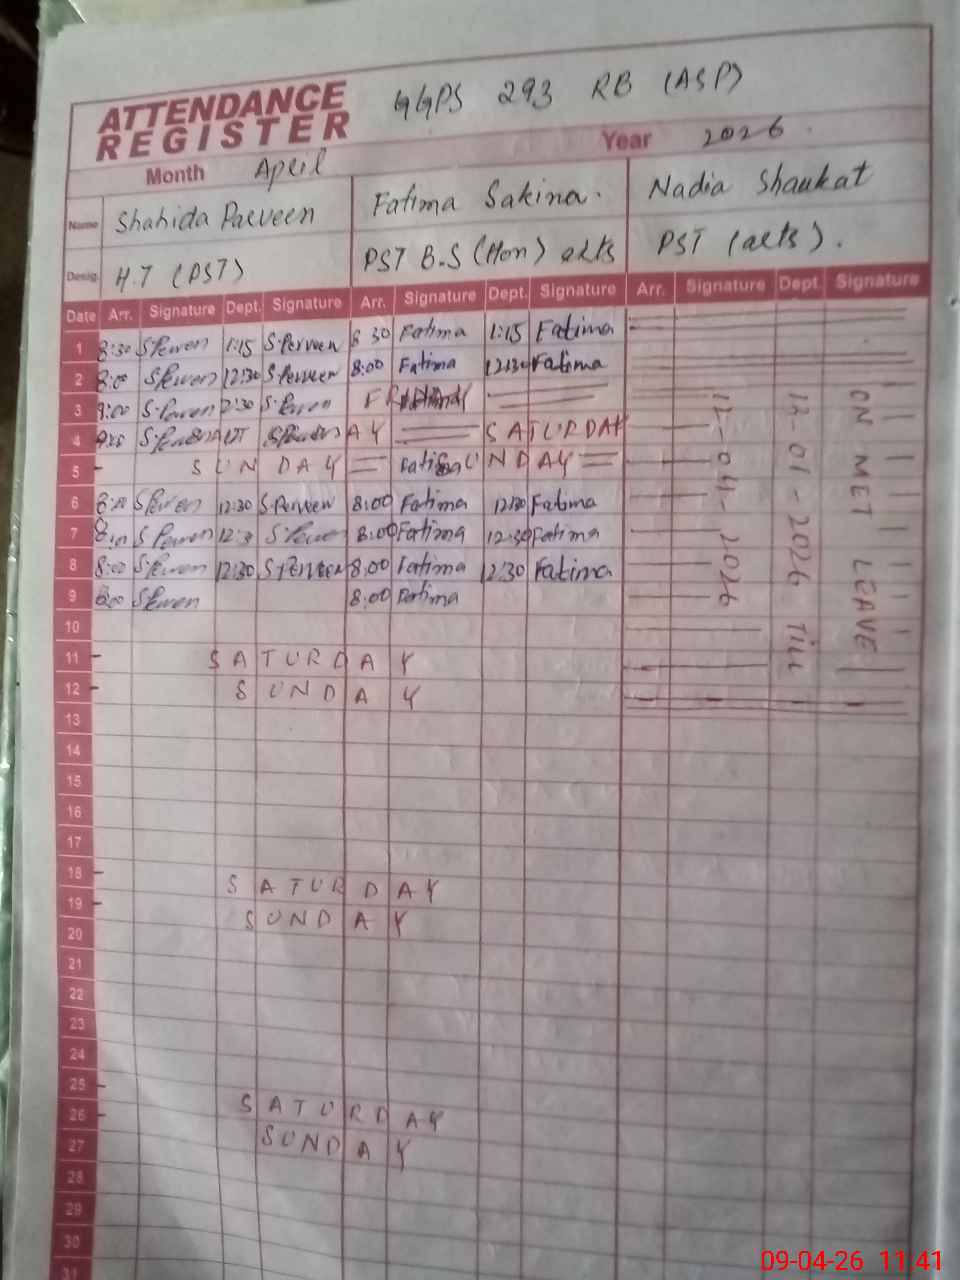 GGPS 293 RB (ASP)
ATTENDANCE
REGISTER
Month April Year 2026
Name Shahida Parveen Fatima Sakina. Nadia Shaukat
Desig. H.T (PST) PST B.S (Hon) arts PST (arts).
Date Arr. Signature Dept. Signature Arr. Signature Dept. Signature Arr. Signature Dept. Signature
1 8:30 S.Perven 1:15 S.Perveen 8:30 Fatima 1:15 Fatima
2 8:00 S.Perven 12:30 S.Perveen 8:00 Fatima 12:30 Fatima
3 9:00 S.Perven 2:30 S.Perven
4 AY SATURDAY
5 - SUNDAY Fatima SUNDAY
6 S.Perven 12:30 S.Perveen 8:00 Fatima 12:30 Fatima
7 S.Perven S.Perven 8:00 Fatima 12:30 Fatima
8 8:00 S.Perven 12:30 S.Perveen 8:00 Fatima 12:30 Fatima
9 8:00 S.Perven 8:00 Fatima
10
11 - SATURDAY
12 - SUNDAY
13
14
15
16
17
18 - SATURDAY
19 - SUNDAY
20
21
22
23
24
25 - SATURDAY
26 - SUNDAY
27
28
29
30
31
ON MET LEAVE
12-01-2026 Till
12-04-2026
09-04-26 11:41